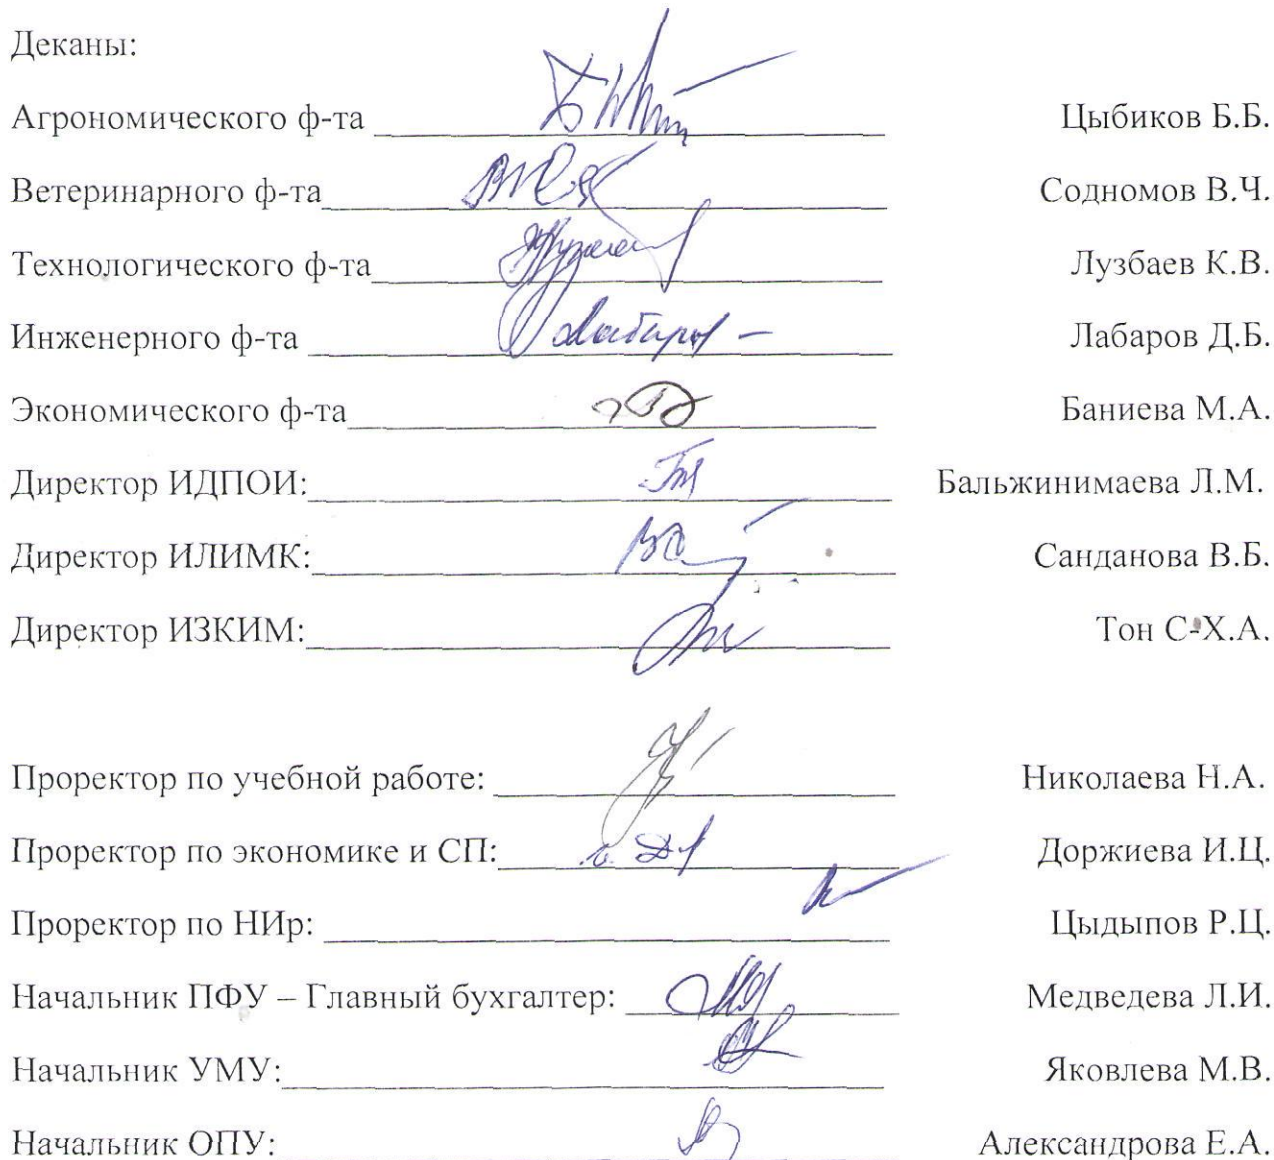 Деканы:
Агрономического ф-та Цыбиков Б.Б.
Ветеринарного ф-та Содномов В.Ч.
Технологического ф-та Лузбаев К.В.
Инженерного ф-та Лабаров Д.Б.
Экономического ф-та Баниева М.А.
Директор ИДПОИ: Бальжинимаева Л.М.
Директор ИЛИМК: Санданова В.Б.
Директор ИЗКИМ: Тон С-Х.А.
Проректор по учебной работе: Николаева Н.А.
Проректор по экономике и СП: Доржиева И.Ц.
Проректор по НИр: Цыдыпов Р.Ц.
Начальник ПФУ – Главный бухгалтер: Медведева Л.И.
Начальник УМУ: Яковлева М.В.
Начальник ОПУ: Александрова Е.А.